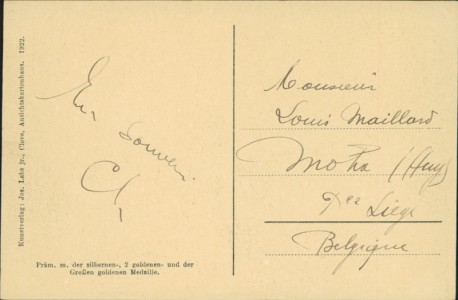 Kunstverlag: Jos. Lehs jr., Cleve, Ansichtskartenhaus. 1922.
En souvenir
Präm. m. der silbernen-, 2 goldenen- und der
Großen goldenen Medaille.
Monsieur
Louis Maillard
Moha (Huy)
Liège
Belgique